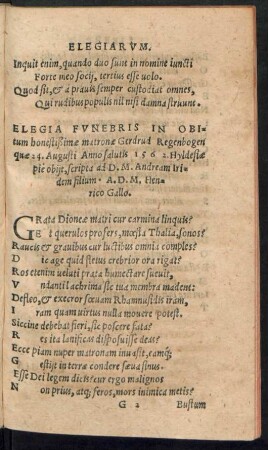 ELEGIARVM.
Inquit enim, quando duo sunt in nomine iuncti
Forte meo socij, tertius esse uolo.
Quod sit, & à prauis semper custodiat omnes,
Qui rudibus populis nil nisi damna struunt.
ELEGIA FVNEBRIS IN OBI-
tum honestissimæ matronæ Gerdrud Regenbogen
quæ 24. Augusti Anno salutis 1562. Hyldesiæ
pie obijt, scripta ad D. M. Andream Iri
dem filium. A. D. M. Hen-
rico Gallo.
GRata Dioneæ matri cur carmina linquis?
Et querulos profers, mœsta Thalia, sonos?
Raucis & grauibus cur luctibus omnia comples?
Dic age quid fletus crebrior ora rigat?
Ros etenim ueluti prata humectare sueuit,
Vndanti lachrima sic tua membra madent:
Defleo, & execror sæuam Rhamnusidis iram,
Iram quam uirtus nulla mouere potest.
Siccine debebat fieri, sic poscere fata?
Res ita lanificas disposuisse deas?
Ecce piam nuper matronam inuasit, eamq́;
Gestijt in terra condere sæua sinus.
Esse Dei legem dicis? cur ergo malignos
Non prius, atq; feros, mors inimica metis?
G 2 Bustum